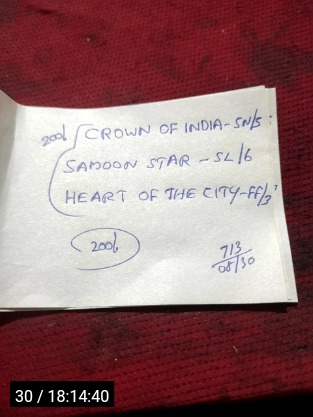 2006 CROWN OF INDIA-SN/5:
SADOON STAR - SL/6
HEART OF THE CITY-FF/3'
2006
713
08/30
30 / 18:14:40